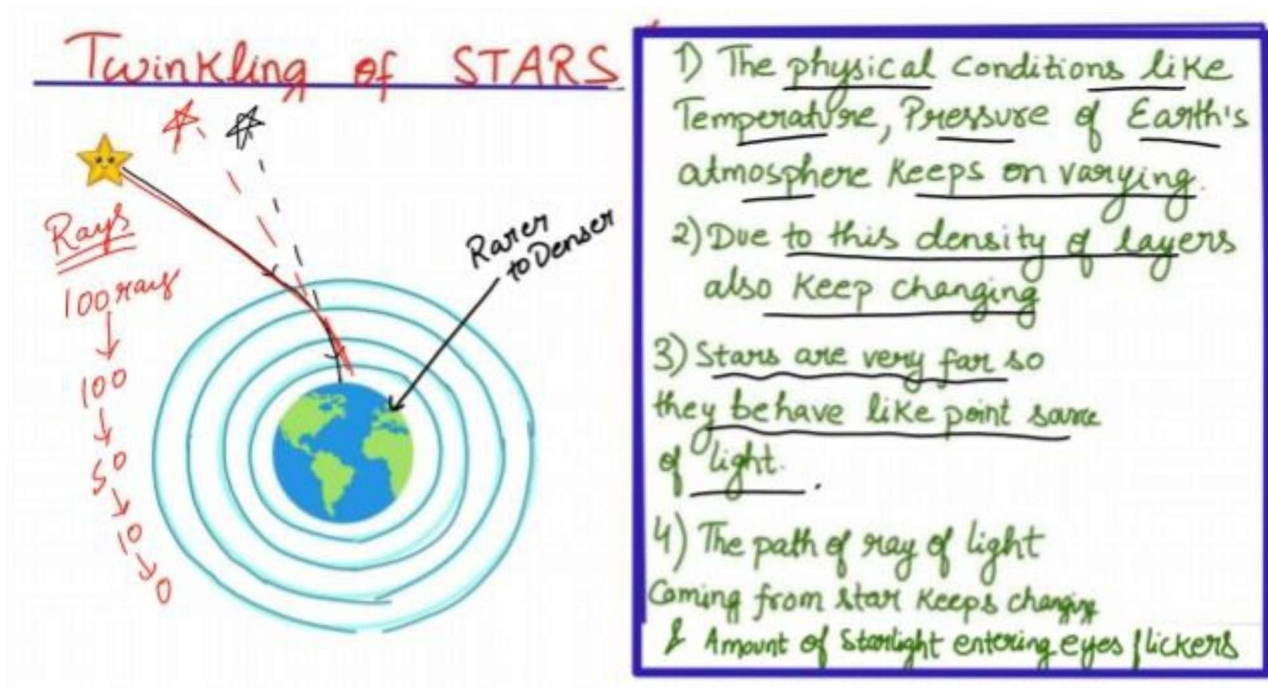 Twinkling of STARS
Rays
100 rays
100
50
10
0
Rarer
to Denser
1) The physical conditions like
Temperature, Pressure of Earth's
atmosphere keeps on varying.
2) Due to this density of layers
also keep changing
3) Stars are very far so
they behave like point source
of light.
4) The path of ray of light
Coming from star keeps changing
& Amount of starlight entering eyes flickers